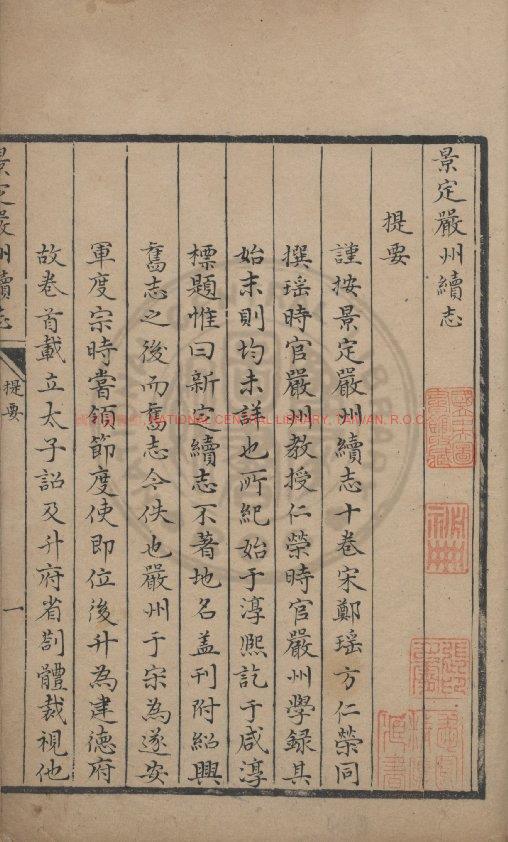 景定嚴州續志
提要
謹按景定嚴州續志十卷宋鄭瑤方仁榮同
撰瑤時官嚴州教授仁榮時官嚴州學錄其
始末則均未詳也所紀始于淳熙訖于咸淳
標題惟曰新定續志不著地名盖刊附紹興
舊志之後而舊志今佚也嚴州于宋為遂安
軍度宗時嘗領節度使即位後升為建德府
故卷首載立太子詔及升府省劄體裁視他
景定嚴州續志
提要
一
NATIONAL CENTRAL LIBRARY, TAIWAN, R.O.C.